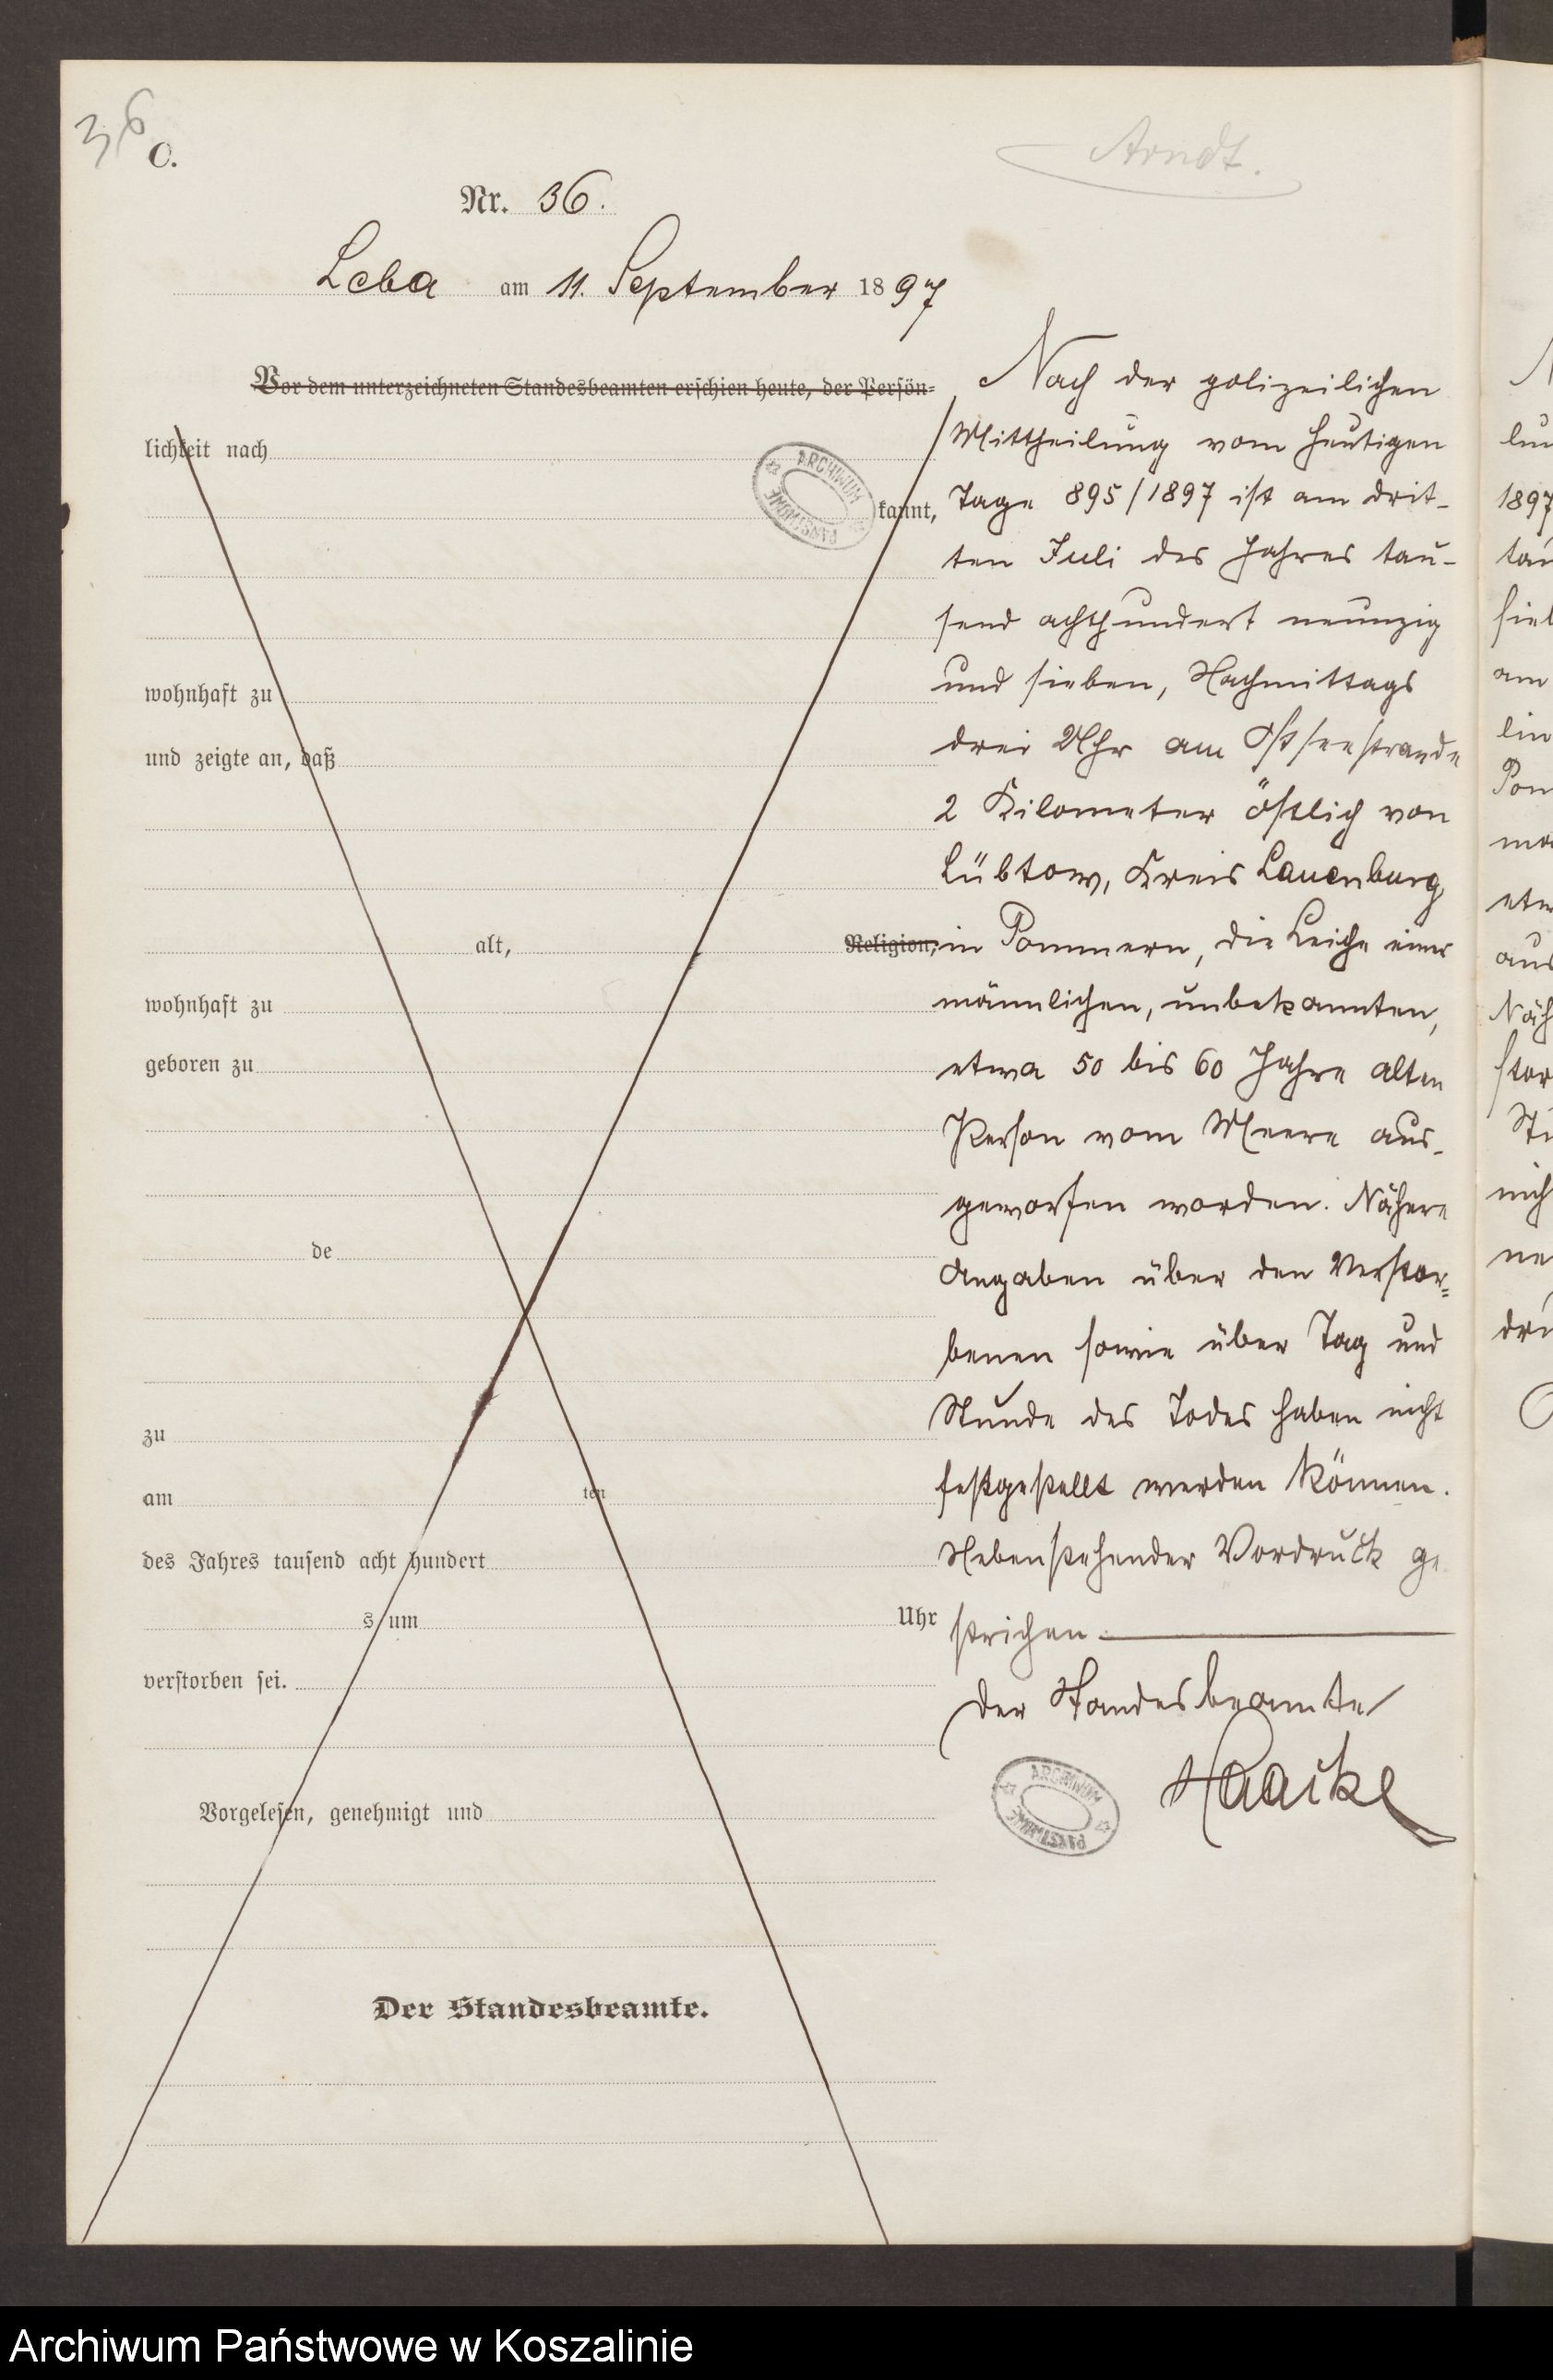 36
C.
Arndt.
Nr. 36.
Leba am 11. September 1897
Vor dem unterzeichneten Standesbeamten erschien heute, der Persön=
lichkeit nach
kannt,
wohnhaft zu
und zeigte an, daß
alt, Religion,
wohnhaft zu
geboren zu
de
zu
am ten
des Jahres tausend acht hundert
s um Uhr
verstorben sei.
Vorgelesen, genehmigt und
Der Standesbeamte.
Nach der polizeilichen
Mittheilung vom heutigen
Tage 895/1897 ist am drit-
ten Juli des Jahres tau-
send achthundert neunzig
und sieben, Nachmittags
drei Uhr am Ostseestrande
2 Kilometer östlich von
Lübtow, Kreis Lauenburg
in Pommern, die Leiche einer
männlichen, unbekannten,
etwa 50 bis 60 Jahre alten
Person vom Meere aus-
geworfen worden. Nähere
Angaben über den Verstor=
benen sowie über Tag und
Stunde des Todes haben nicht
festgestellt werden können.
Nebenstehender Vordruck ge
strichen.
Der Standesbeamte
Haacke
ARCHIWUM PAŃSTWOWE
ARCHIWUM PAŃSTWOWE
N
lun
1897
tau
sieb
am
lin
Pom
mä
etw
aus
Näh
stor
Stu
nich
ne
dru
Archiwum Państwowe w Koszalinie